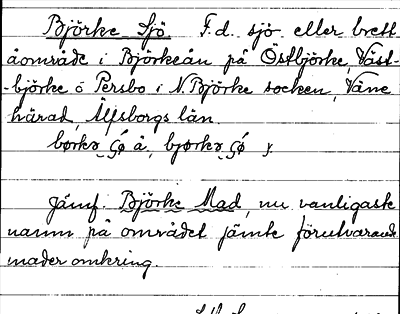 Björke Sjö F.d. sjö eller brett
åområde i Björkeån på Östbjörke, Väst-
-björke o Persbo i N. Björke socken, Väne
härad, Älfsborgs län.
Jämf. Björke Mad, nu vanligaste
namn på området jämte förutvarande
mader omkring.